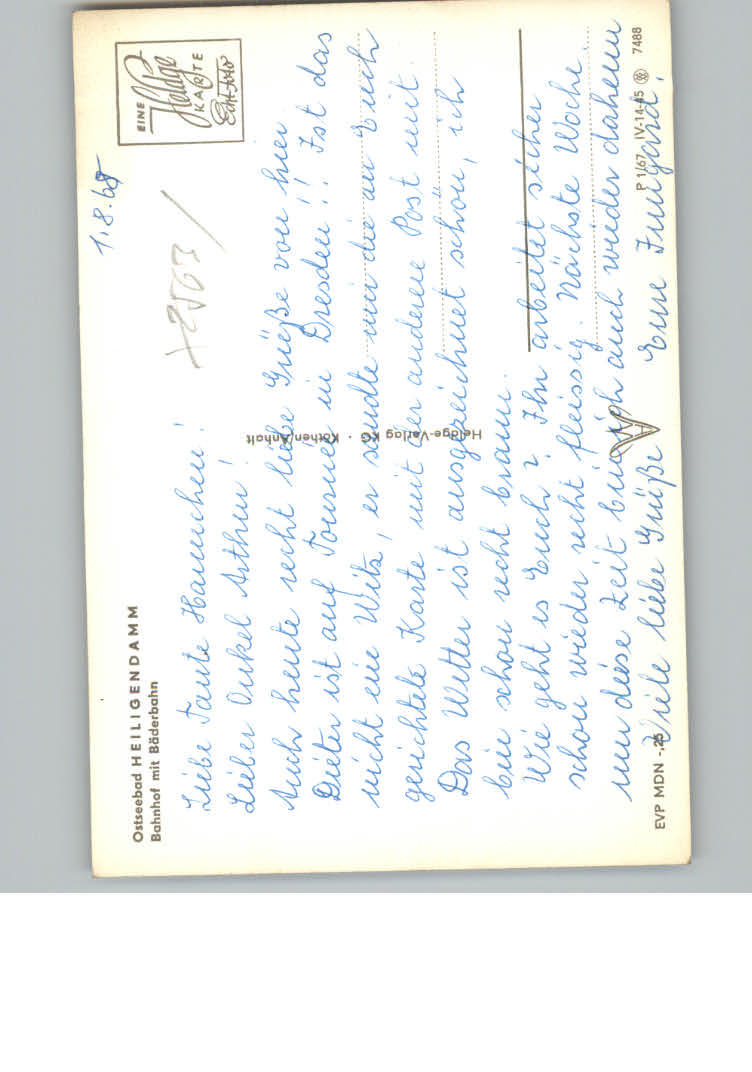 Ostseebad HEILIGENDAMM
Bahnhof mit Bäderbahn
EINE
Heldge
KARTE
Echt-Foto
1.8.68
Liebe Tante Hannchen!
Lieber Onkel Arthur!
Auch heute recht liebe Grüße von hier.
Dieter ist auf Tournee in Dresden!! Ist das
nicht ein Witz, er sandte mir die an Euch
gerichtete Karte mit der anderen Post mit.
Das Wetter ist ausgezeichnet schön, ich
bin schon recht braun.
Wie geht es Euch? Ihr arbeitet sicher
schon wieder recht fleissig. Nächste Woche
um diese Zeit bin ich auch wieder daheim
Viele liebe Grüße Eure Irmgard.
Heldge-Verlag KG · Köthen/Anhalt
EVP MDN -,25
P 1/67 IV-14-45 7488